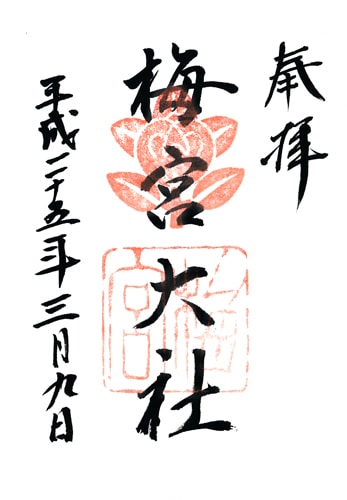 奉拝
梅宮大社
梅宮
平成二十五年三月九日